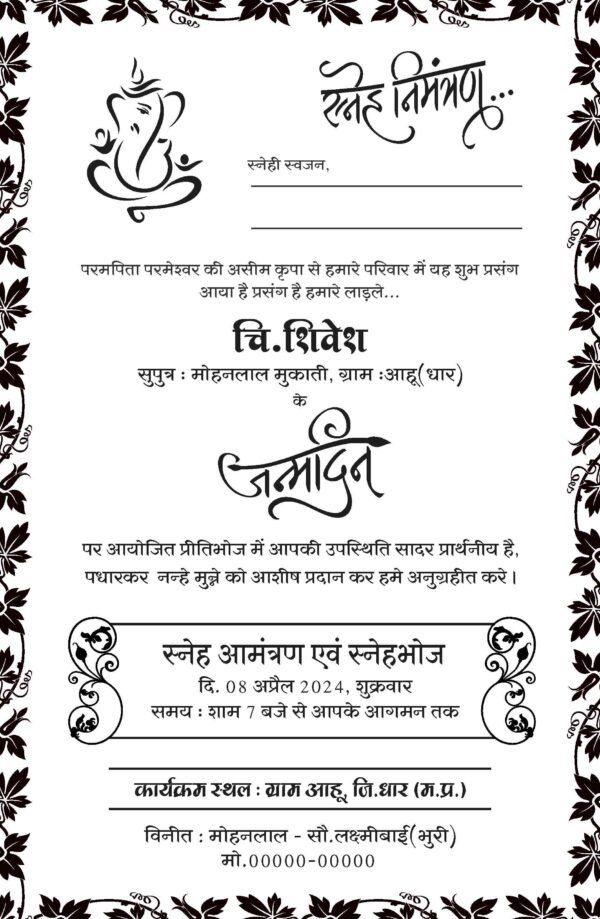 स्नेह निमंत्रण...
स्नेही स्वजन,
परमपिता परमेश्वर की असीम कृपा से हमारे परिवार में यह शुभ प्रसंग
आया है प्रसंग है हमारे लाड़ले...
चि.शिवेश
सुपुत्र : मोहनलाल मुकाती, ग्राम :आहू(धार)
के
जन्मदिन
पर आयोजित प्रीतिभोज में आपकी उपस्थिति सादर प्रार्थनीय है,
पधारकर नन्हे मुन्ने को आशीष प्रदान कर हमे अनुग्रहीत करे।
स्नेह आमंत्रण एवं स्नेहभोज
दि. 08 अप्रैल 2024, शुक्रवार
समय : शाम 7 बजे से आपके आगमन तक
कार्यक्रम स्थल : ग्राम आहू, जि.धार (म.प्र.)
विनीत : मोहनलाल - सौ.लक्ष्मीबाई(भुरी)
मो.00000-00000